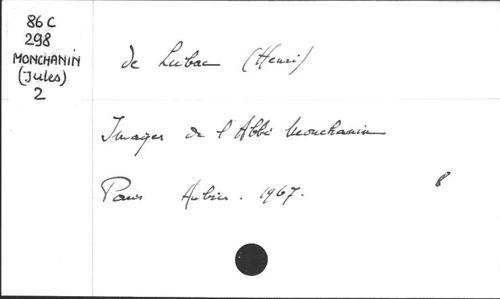 86 C
298
MONCHANIN
(Jules)
2
de Lubac (Henri)
Images de l'Abbé Monchanin
Paris Aubier. 1967. 8